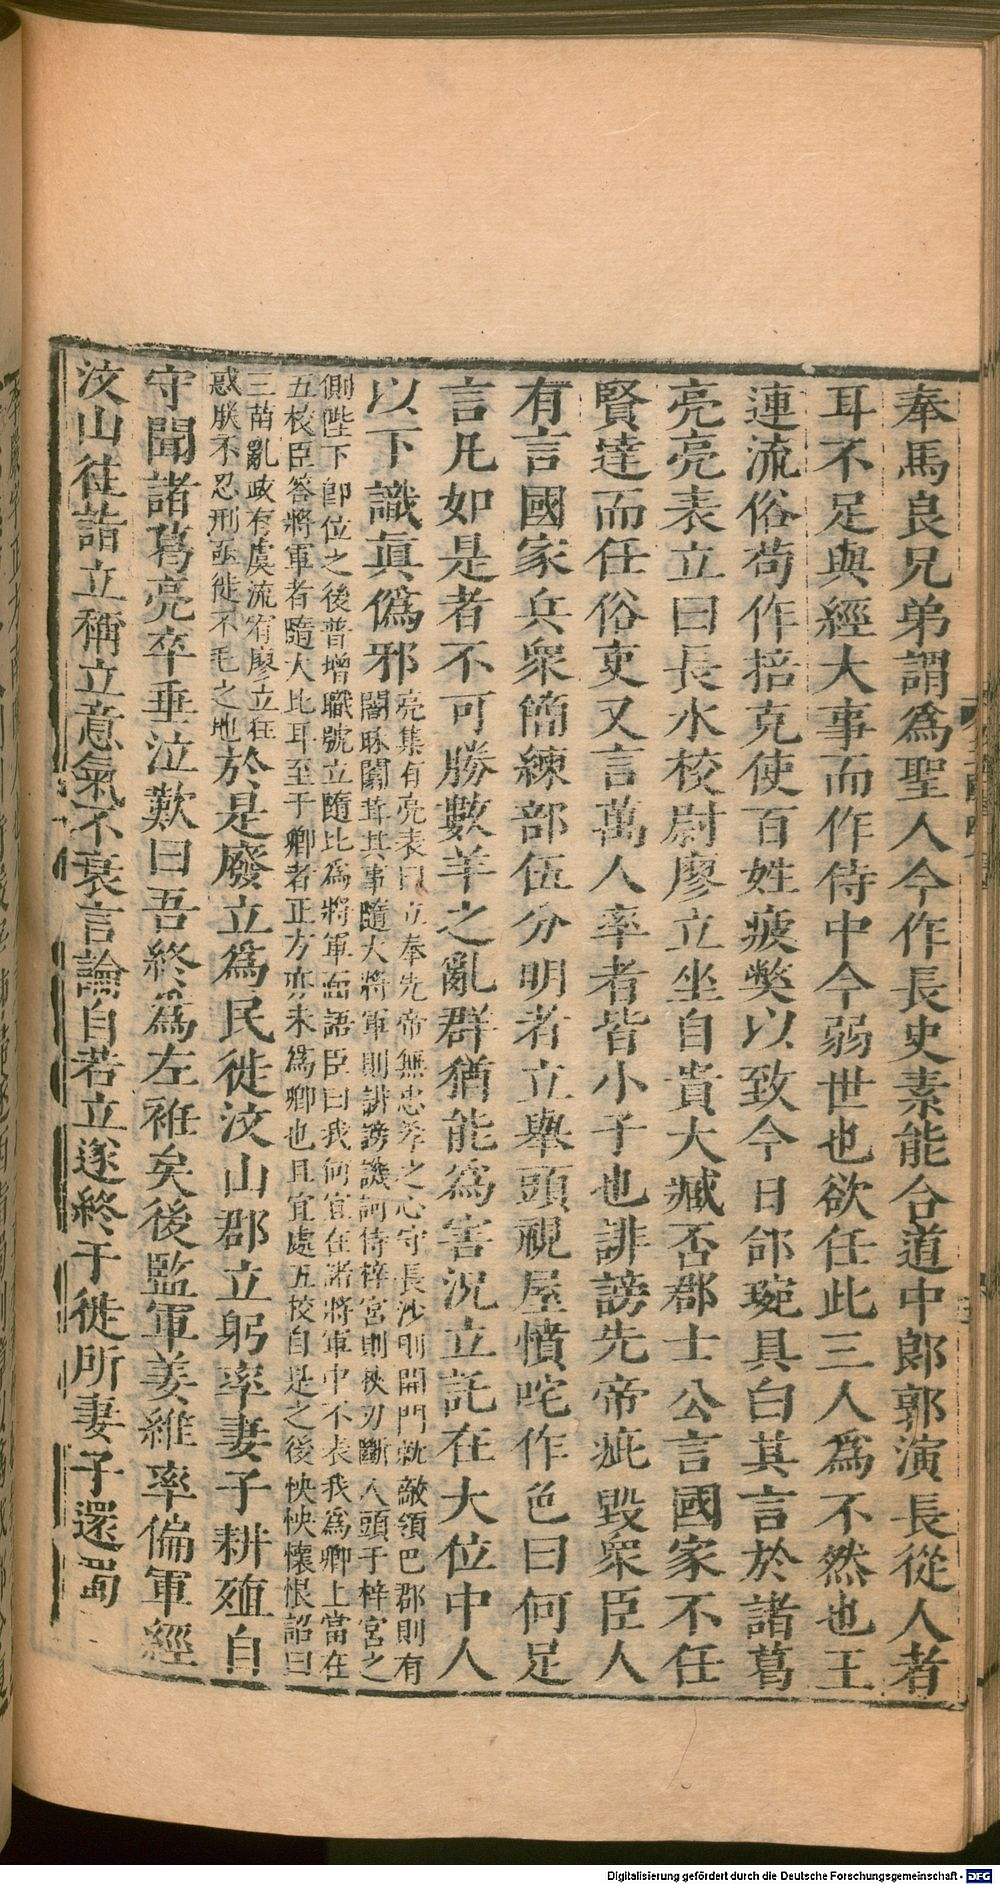 奉馬良兄弟謂爲聖人今作長史素能合道中郎郭演長從人者
耳不足與經大事而作侍中今弱世也欲任此三人爲不然也王
連流俗苟作掊克使百姓疲獘以致今日郃琬具白其言於諸葛
亮亮表立曰長水校尉廖立坐自貴大臧否郡士公言國家不任
賢達而任俗吏又言萬人率者皆小子也誹謗先帝疵毀衆臣人
有言國家兵衆簡練部伍分明者立舉頭視屋憤咤作色曰何足
言凡如是者不可勝數羊之亂群猶能爲害況立託在大位中人
以下識眞僞邪
亮集有亮表曰立奉先帝無忠孝之心守長沙則開門就敵領巴郡則有
闇昧闒茸其事隨大將軍則誹謗譏訶侍梓宮則挾刃斷人頭于梓宮之
側陛下卽位之後普增職號立隨比爲將軍面語臣曰我何宜在諸將軍中不表我爲卿上當在
五校臣答將軍者隨大比耳至于卿者正方亦未爲卿也且宜處五校自是之後怏怏懷恨詔曰
三苗亂政有虞流宥廖立狂
惑朕不忍刑亟徙不毛之地
於是廢立爲民徙汶山郡立躬率妻子耕殖自
守聞諸葛亮卒垂泣歎曰吾終爲左袵矣後監軍姜維率偏軍經
汶山往詣立稱立意氣不衰言論自若立遂終于徙所妻子還蜀
Digitalisierung gefördert durch die Deutsche Forschungsgemeinschaft - DFG